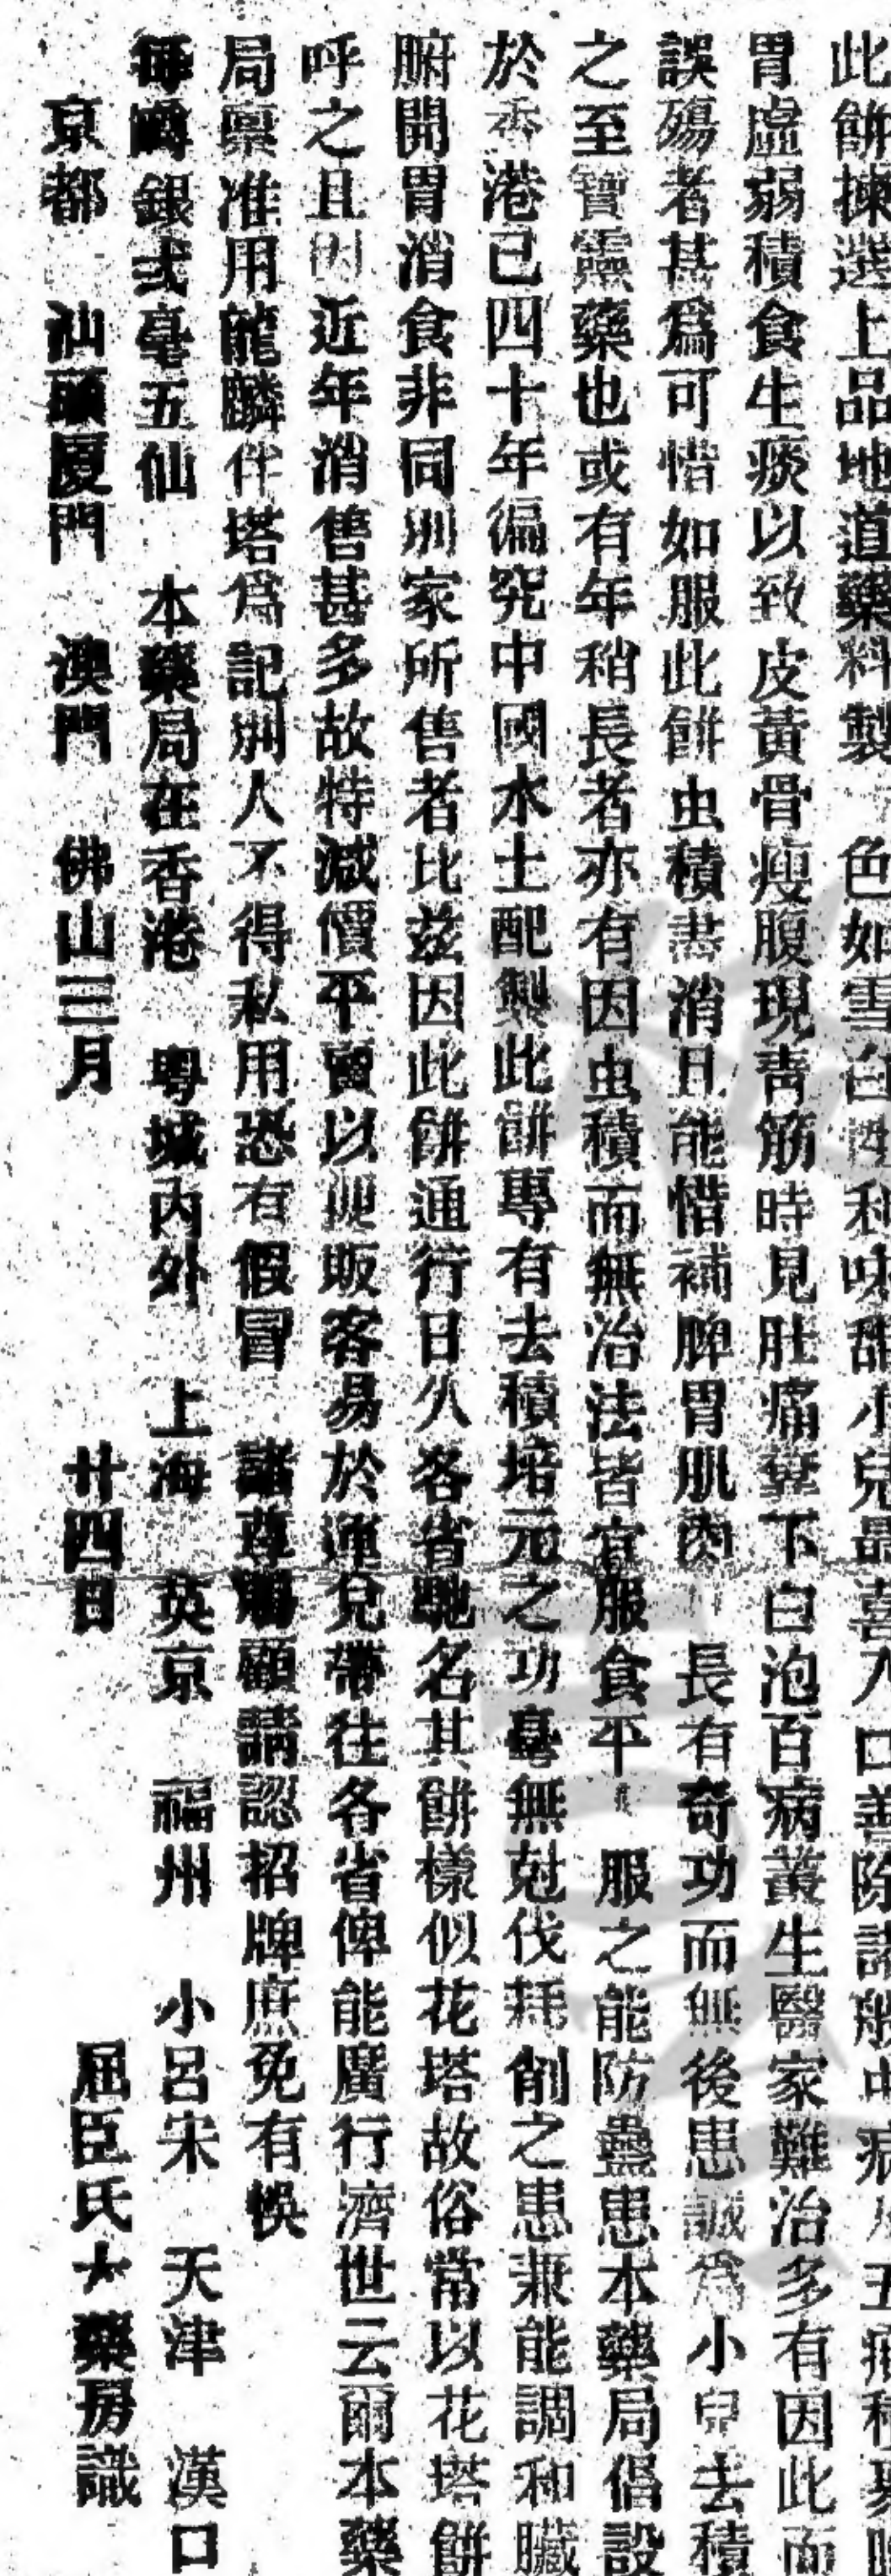 此餅揀選上品地道藥料製 色如雪白性和味甜小兒最喜入口善除諸般虫病
胃虛弱積食生痰以致皮黃骨瘦腹現青筋時見肚痛糞下白泡百病叢生醫家難治多有因此而
誤殤者甚爲可惜如服此餅虫積盡消且能惜補脾胃肌肉 長有奇功而無後患誠爲小兒去積
之至寶靈藥也或有年稍長者亦有因虫積而無冶法皆宜服食平 服之能防蠱患本藥局倡設
於香港已四十年徧究中國水土配製此餅專有去積培元之功毫無尅伐耗削之患兼能調和臟
腑開胃消食非同別家所售者比茲因此餅通行日久各省馳名其餅樣似花塔故俗常以花塔餅
呼之且因近年消售甚多故特減價平賣以便販客易於運兌帶往各省俾能廣行濟世云爾本藥
局稟准用龍麟伴塔爲記別人不得私用恐有假冒 諸尊賜顧請認招牌庶免有悞
每罇銀弍毫五仙 本藥局在香港 粵城內外 上海 英京 福州 小呂宋 天津 漢口
京都 汕頭廈門 澳門 佛山三月 廿四日 屈臣氏大藥房識